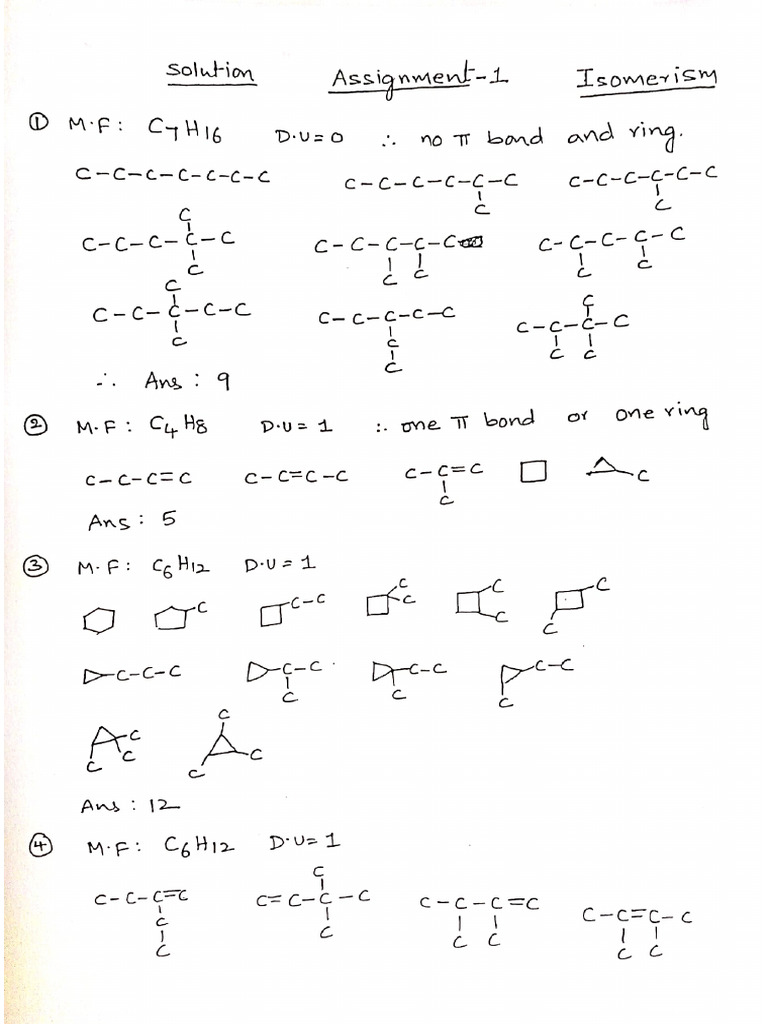 Solution Assignment-1 Isomerism
① M.F: C7H16 D.U=0 ∴ no π bond and ring.
C-C-C-C-C-C-C C-C-C-C-C-C C-C-C-C-C-C
C C
C
C-C-C-C-C C-C-C-C-C C-C-C-C-C
C C C C C
C
C-C-C-C-C C-C-C-C-C C
C C-C-C-C
C C C
C
∴ Ans : 9
② M.F: C4H8 D.U=1 ∴ one π bond or one ring
C-C-C=C C-C=C-C C-C=C C
C
Ans : 5
③ M.F: C6H12 D.U=1
C C-C C C C C
C C
C-C-C C-C C-C C-C
C C C
C C C
C C C
Ans : 12
④ M.F: C6H12 D.U=1
C
C-C-C=C C=C-C-C C-C-C=C C-C=C-C
C C C C C C
C